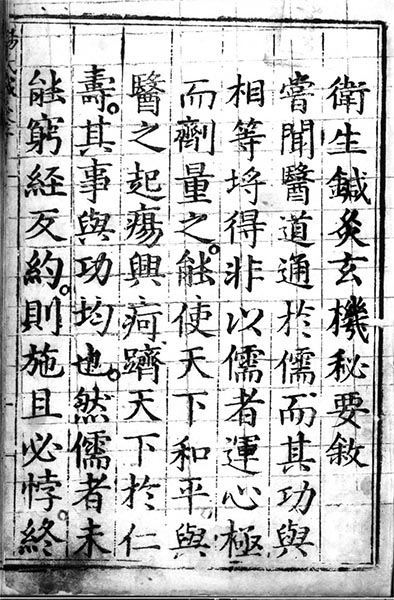 衛生鍼灸玄機秘要敘
嘗聞醫道通於儒而其功與
相等埒得非以儒者運心極
而劑量之。能使天下和平與
醫之起瘍興疴躋天下於仁
壽。其事與功均也。然儒者未
能窮經反約。則施且必悖。終